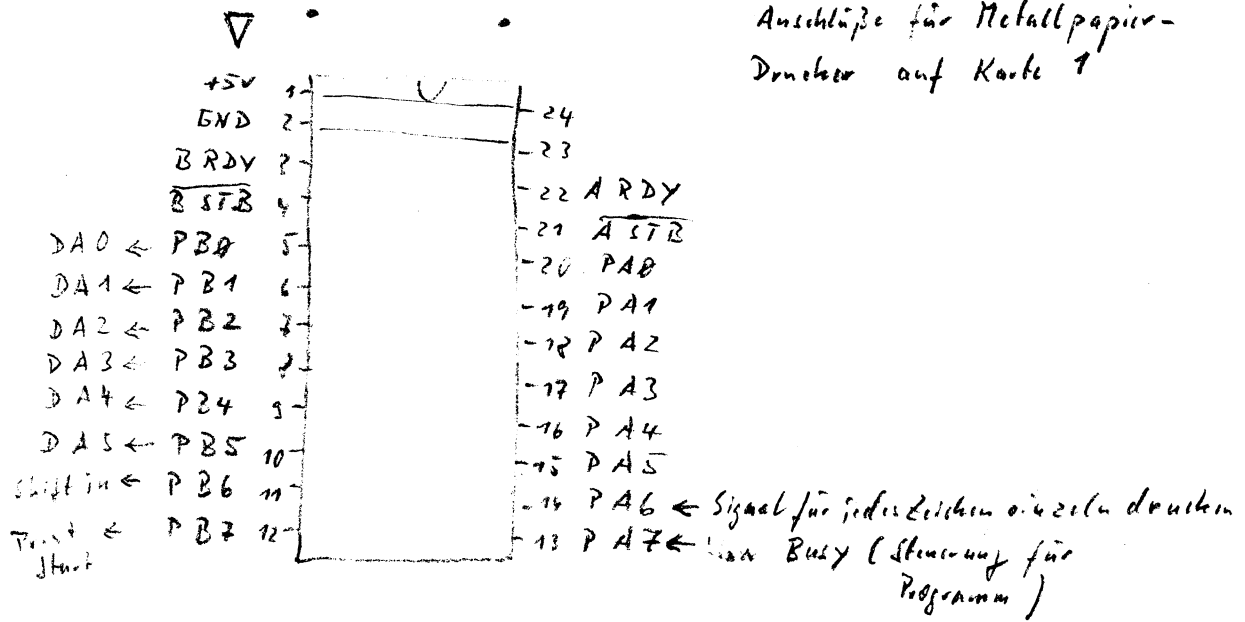 Anschlüße für Metallpapier-
Drucker auf Karte 1
+5V 1
GND 2
B RDY 3
B STB 4
DA0 ← PB0 5
DA1 ← PB1 6
DA2 ← PB2 7
DA3 ← PB3 8
DA4 ← PB4 9
DA5 ← PB5 10
Shift in ← PB6 11
Print Start ← PB7 12
24
23
22 A RDY
21 A STB
20 PA0
19 PA1
18 PA2
17 PA3
16 PA4
15 PA5
14 PA6 ← Signal für jedes Zeichen einzeln drucken
13 PA7 ← Busy (Steuerung für
Programm)